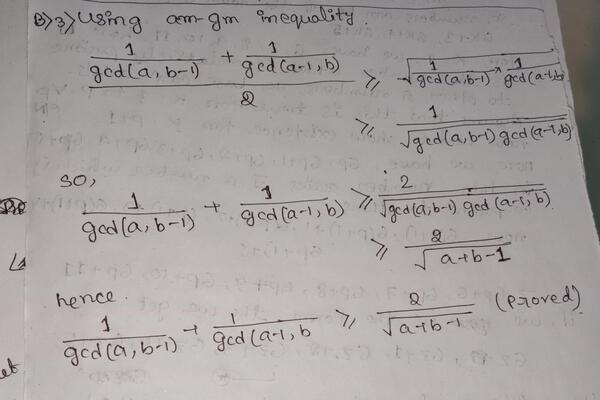 B) 3) Using am-gm inequality.
(1/gcd(a, b-1) + 1/gcd(a-1, b))/2 ≥ √(1/gcd(a, b-1) × 1/gcd(a-1, b))
≥ 1/√(gcd(a, b-1) gcd(a-1, b))
so,
1/gcd(a, b-1) + 1/gcd(a-1, b) ≥ 2/√(gcd(a, b-1) gcd(a-1, b))
≥ 2/√(a+b-1)
hence.
1/gcd(a, b-1) + 1/gcd(a-1, b ≥ 2/√(a+b-1) (proved)